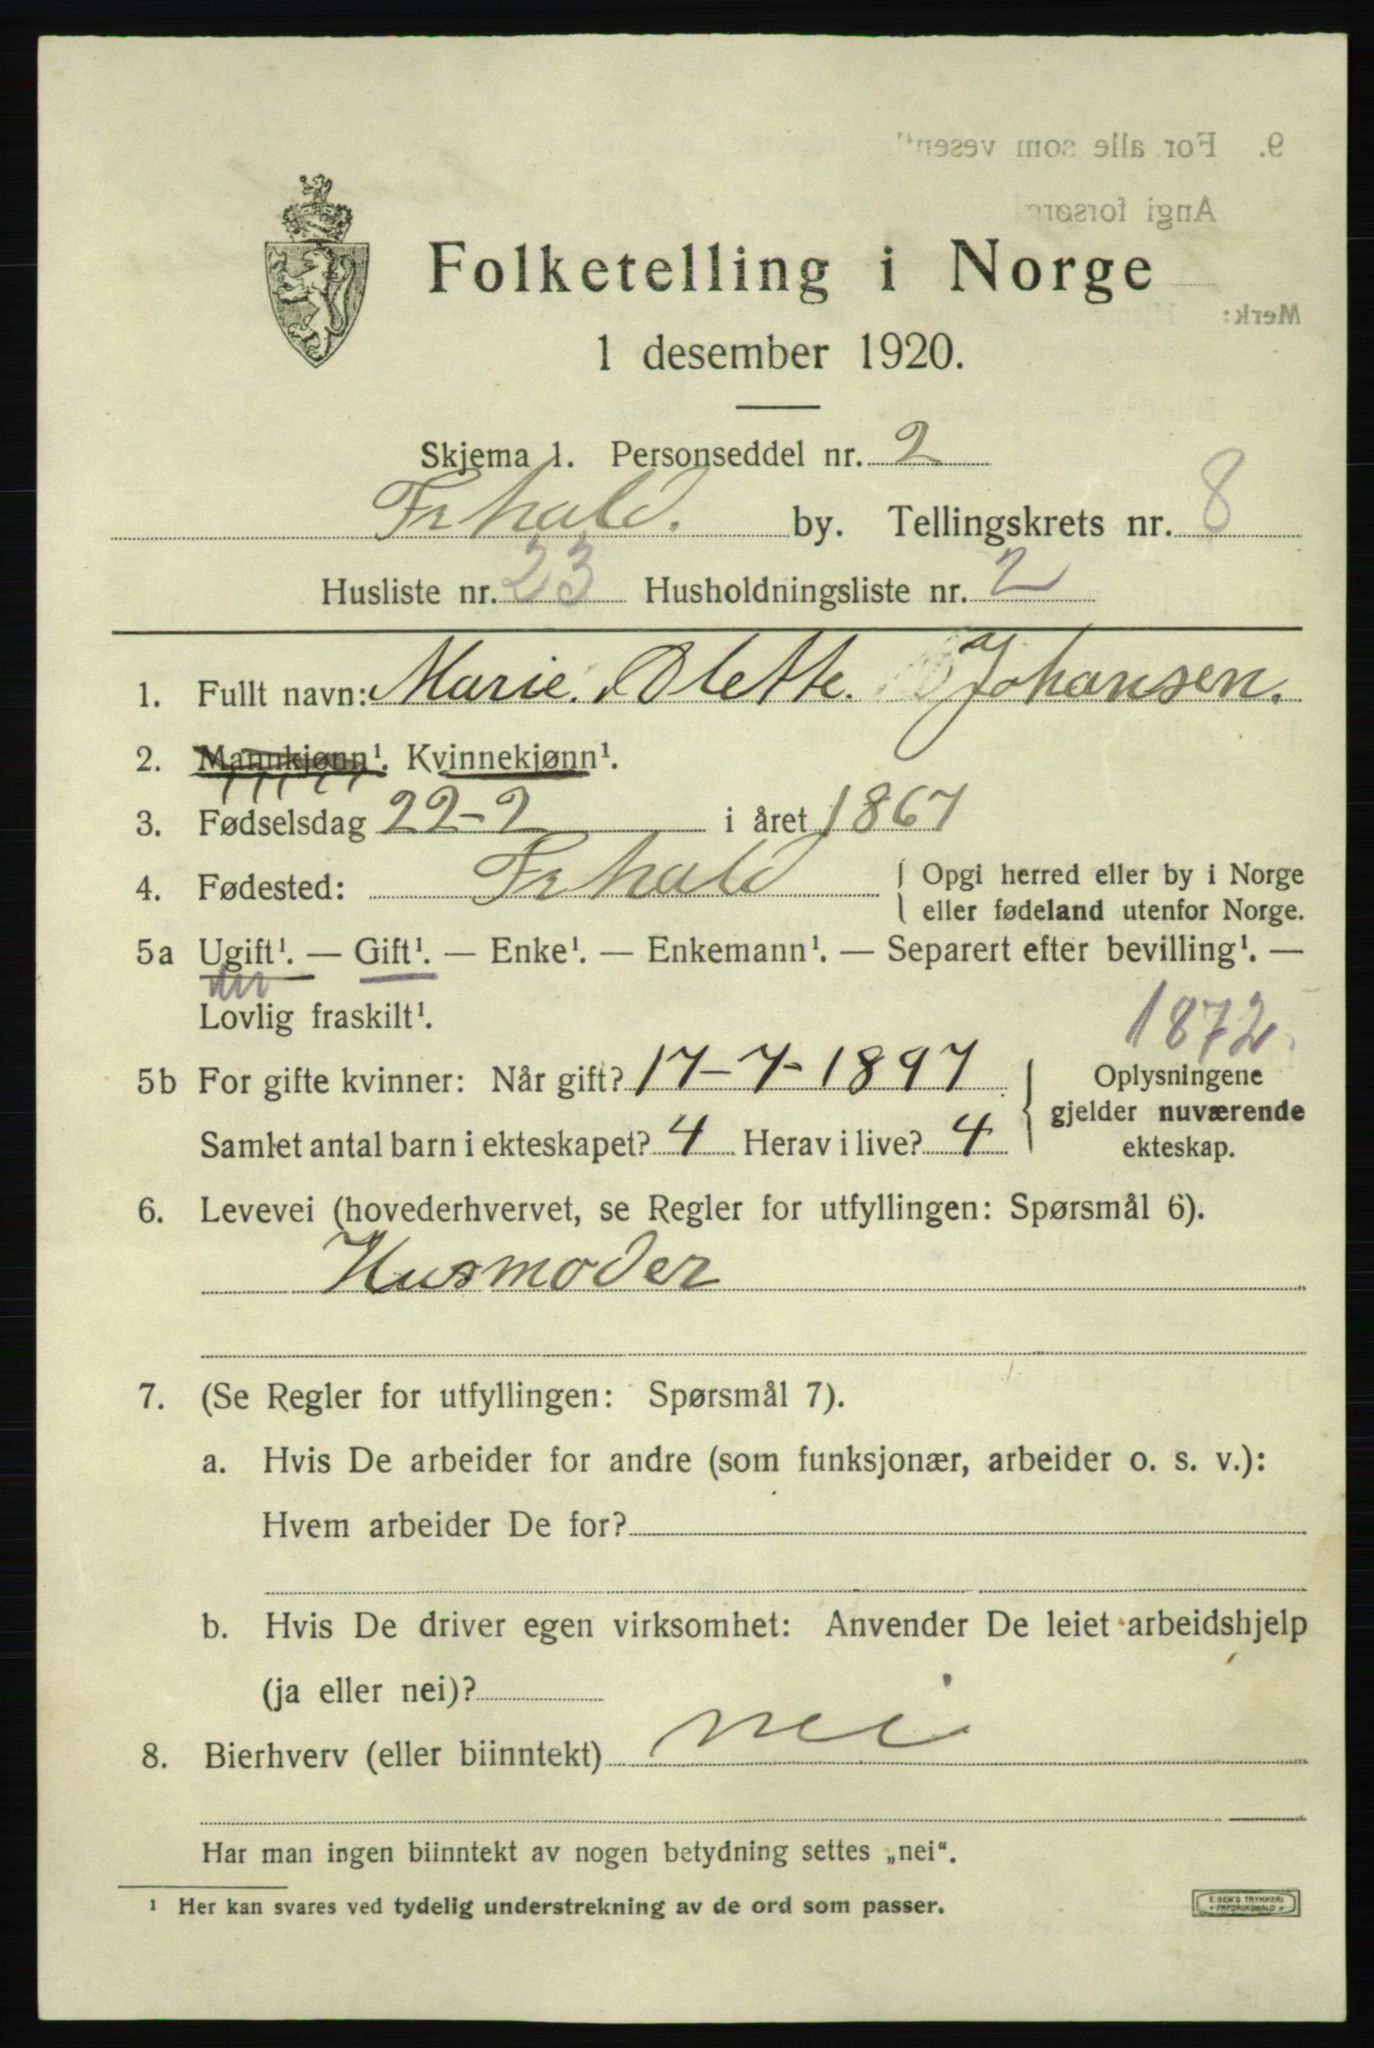 Folketelling i Norge
1 desember 1920.
Skjema 1. Personseddel nr. 2
Frhald. by. Tellingskrets nr. 8
Husliste nr. 23 Husholdningsliste nr. 2
1. Fullt navn: Marie. Olette. Johansen.
2. Mannkjønn¹. Kvinnekjønn¹.
3. Fødselsdag 22-2 i året 1867
4. Fødested: Frhald { Opgi herred eller by i Norge
eller fødeland utenfor Norge.
5a Ugift¹. — Gift¹. — Enke¹. — Enkemann¹. — Separert efter bevilling¹. —
Lovlig fraskilt¹.
1872
5b For gifte kvinner: Når gift? 17-7-1897
Samlet antal barn i ekteskapet? 4 Herav i live? 4
} Oplysningene
gjelder nuværende
ekteskap.
6. Levevei (hovederhvervet, se Regler for utfyllingen: Spørsmål 6).
Husmoder
7. (Se Regler for utfyllingen: Spørsmål 7).
a. Hvis De arbeider for andre (som funksjonær, arbeider o. s. v.):
Hvem arbeider De for?
b. Hvis De driver egen virksomhet: Anvender De leiet arbeidshjelp
(ja eller nei)?
8. Bierhverv (eller biinntekt) nei
Har man ingen biinntekt av nogen betydning settes „nei“.
¹ Her kan svares ved tydelig understrekning av de ord som passer.
E. SEM'S TRYKKERI
FREDRIKSHALD
9. For alle som vesent
Angi forsørg
Merk: